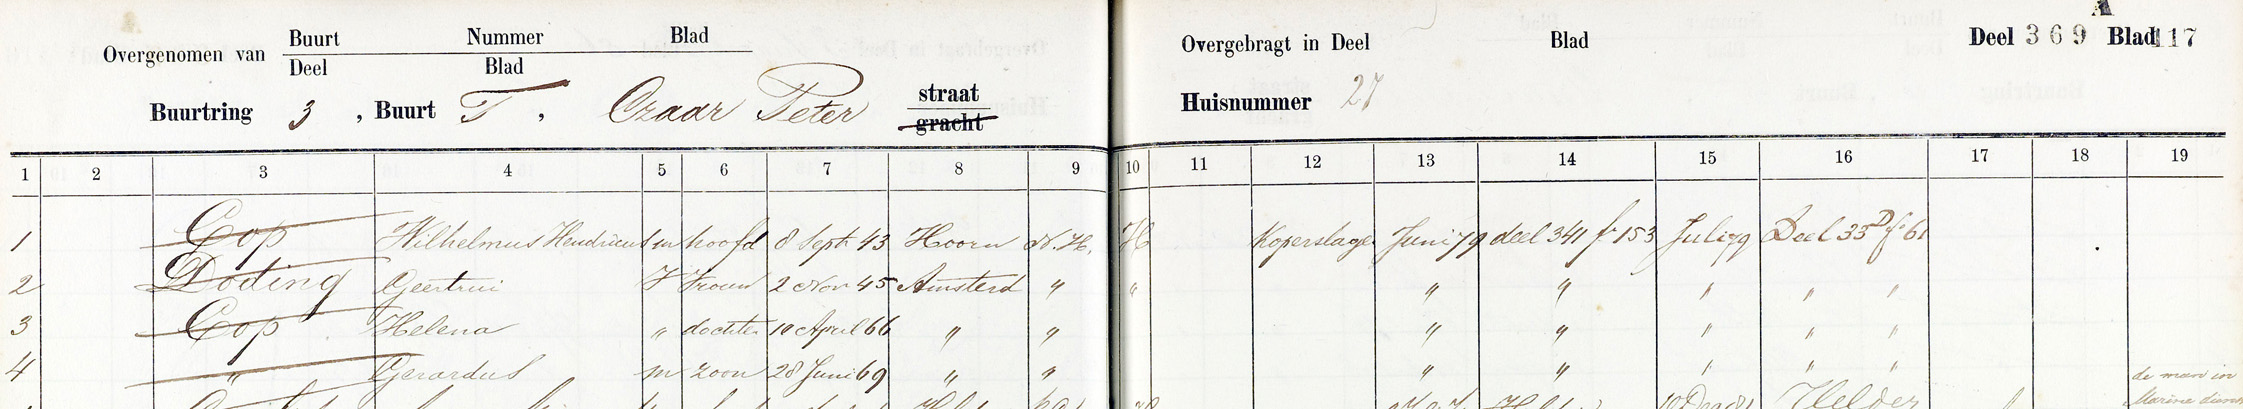 Overgenomen van Buurt Nummer Blad
Deel Blad
Buurtring 3, Buurt T, Czaar Peter straat
gracht
Overgebragt in Deel Blad Deel 369 Blad 117
A
Huisnummer 27
1 2 3 4 5 6 7 8 9 10 11 12 13 14 15 16 17 18 19
1 Cop Wilhelmus Hendricus m hoofd 8 Sept 43 Hoorn N. H. H Koperslager Juni 79 deel 341 f 153 Juli 79 Deel 33D f 61
2 Doting Geertrui V Vrouw 2 Nov 45 Amsterd " " " " " " "
3 Cop Helena " dochter 10 April 66 " " " " " " "
4 " Gerardus m zoon 28 Juni 69 " " " " " " "
de man in
Marine dienst
Helder